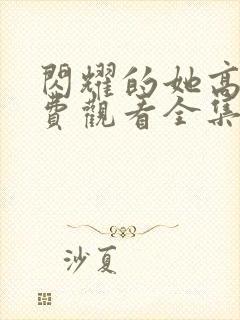 閃耀的她高
費觀看全集
沙夏